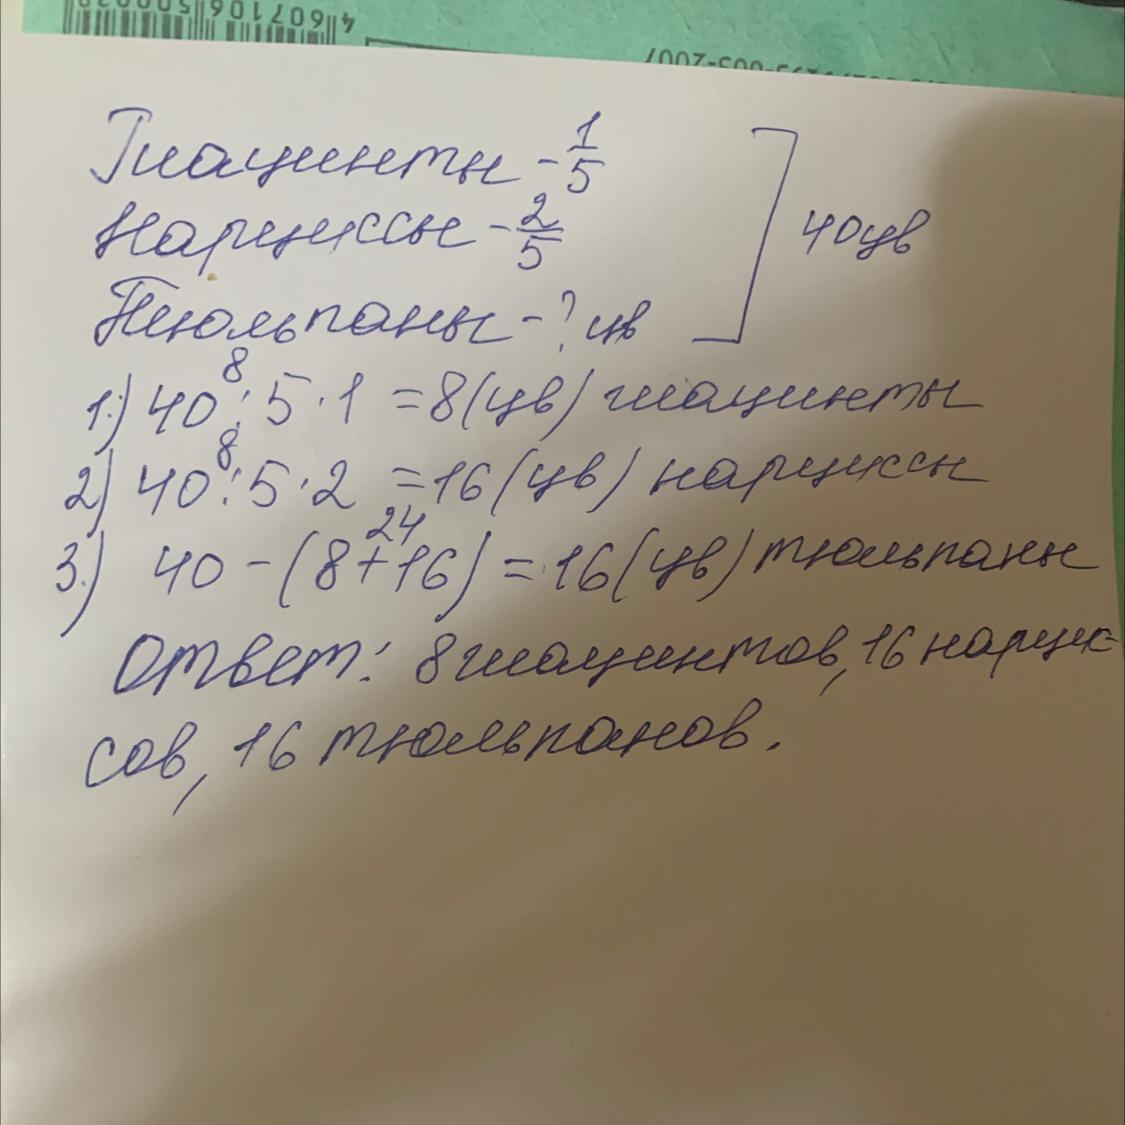 4607106150003
Гиацинты - 1/5
Нарциссы - 2/5
Тюльпаны - ? цв
40цв
1.) 40 : 5 · 1 = 8 (цв) гиацинты
8
2) 40 : 5 · 2 = 16 (цв) нарциссы
8
3.) 40 - (8 + 16) = 16 (цв) тюльпаны
24
Ответ: 8 гиацинтов, 16 нарцис-
сов, 16 тюльпанов.